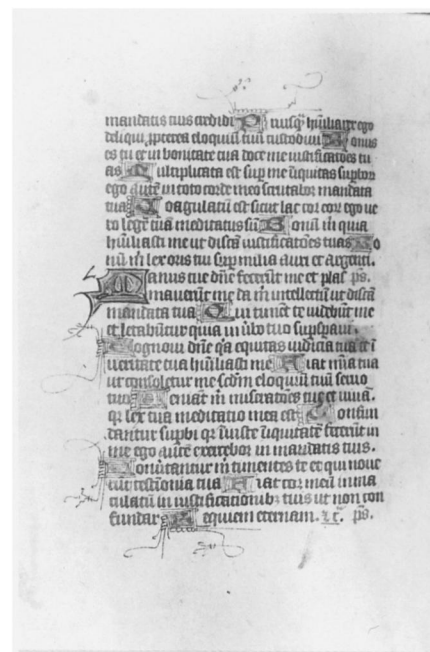 mandatis tuis credidi Priusq̄ hūiliarer ego
deliqui ꝓpterea eloquiū tuū custodiui Bonus
es tu et in bonitate tua doce me iustificatōes tu
as Multiplicata est suꝑ me iniquitas suꝑbor
ego autē in toto corde meo scrutabor mandata
tua Coagulatū est sicut lac cor eoꝝ ego ue
ro legē tuā meditatus sū Bonū m̄ quia
hūiliasti me ut discā iustificatōes tuas Bo
nū m̄ lex oris tui suꝑ milia auri et argenti.
Manus tue dn̄e fecerūt me et plas p̄s.
mauerūt me da m̄ intellectū ut discā
mandata tua Qui timēt te videbūt me
et letabūtur quia in ūba tua suꝑsꝑaui.
Cognoui dn̄e qa equitas iudicia tua et ī
ueritate tua hūiliasti me Fiat mīa tua
ut consoletur me scdm̄ eloquiū tuū seruo
tuo Veniāt m̄ miseratōes tue et uiuā.
qꝛ lex tua meditatio mea est Confun
dantur suꝑbi qꝛ iniuste iniquitatē fecerūt in
me ego autē exercebor in mandatis tuis.
Conuertantur m̄ timentes te et qui noue
rūt testīonia tua Fiat cor meū inma
culatū in iustificationibꝫ tuis ut non con
fundar Requiem eternam. ⁊c̄. p̄s.